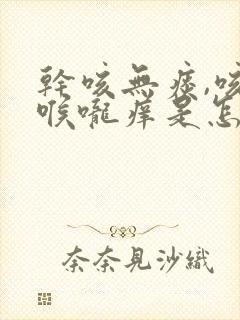 幹咳無痰,咳
喉嚨癢是怎
奈奈見沙織